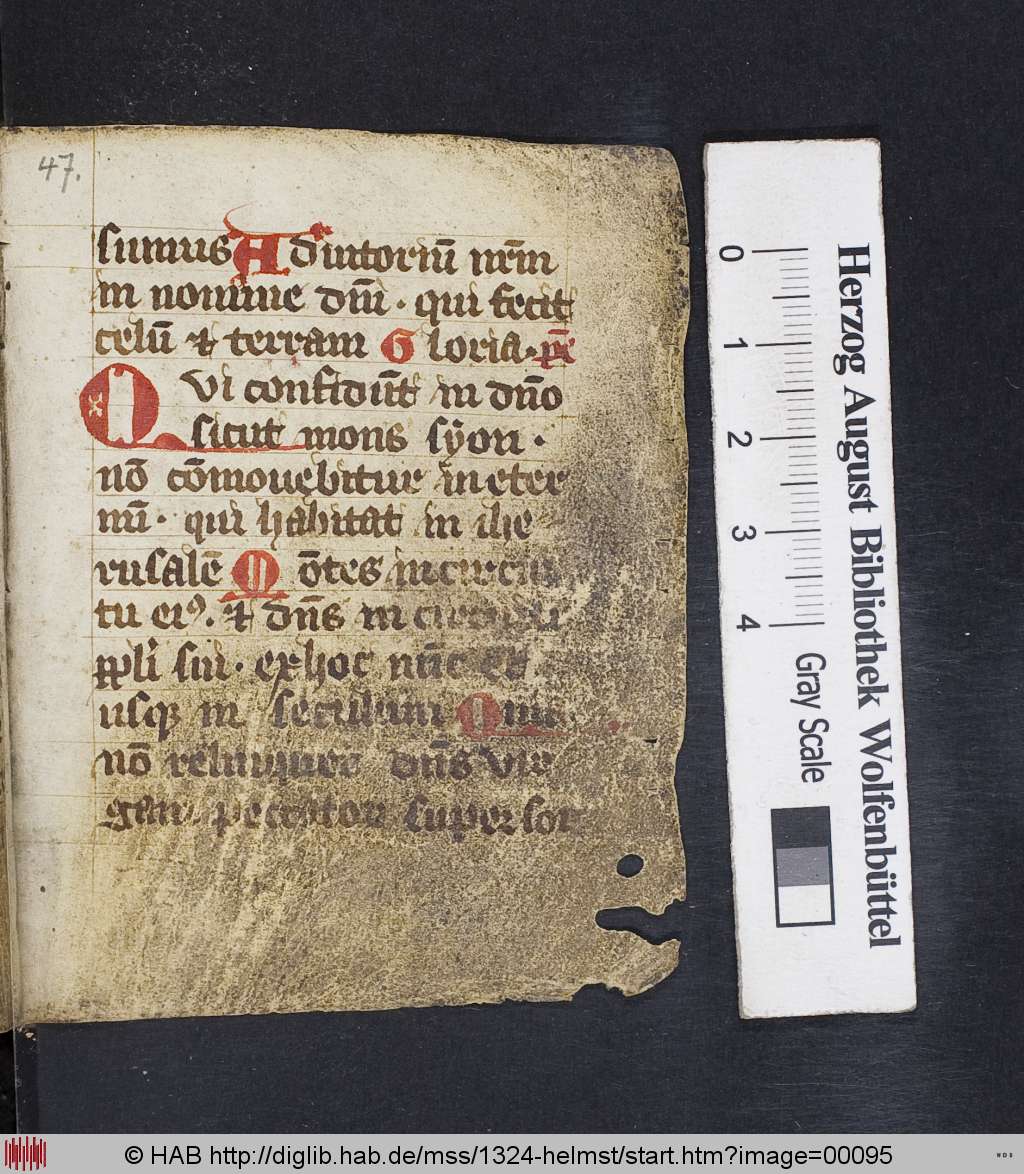 47.
sumus Adiutoriū nr̄m
in nomine dn̄i · qui fecit
celū ⁊ terram Gloria · pr̄i
Qvi confidūt in dn̄o
sicut mons sẏon ·
nō cōmouebitur in eter
nū · qui habitat in ihe
rusalē Mōtes in circui
tu eiꝰ. ⁊ dn̄s in circuitu
ppl̓i sui · ex hoc nūc et
usqꝫ in seculum Quia
nō relinquet dn̄s vir
gam peccatorū super sor
0
1
2
3
4
Gray Scale
Herzog August Bibliothek Wolfenbüttel
© HAB http://diglib.hab.de/mss/1324-helmst/start.htm?image=00095
WDB